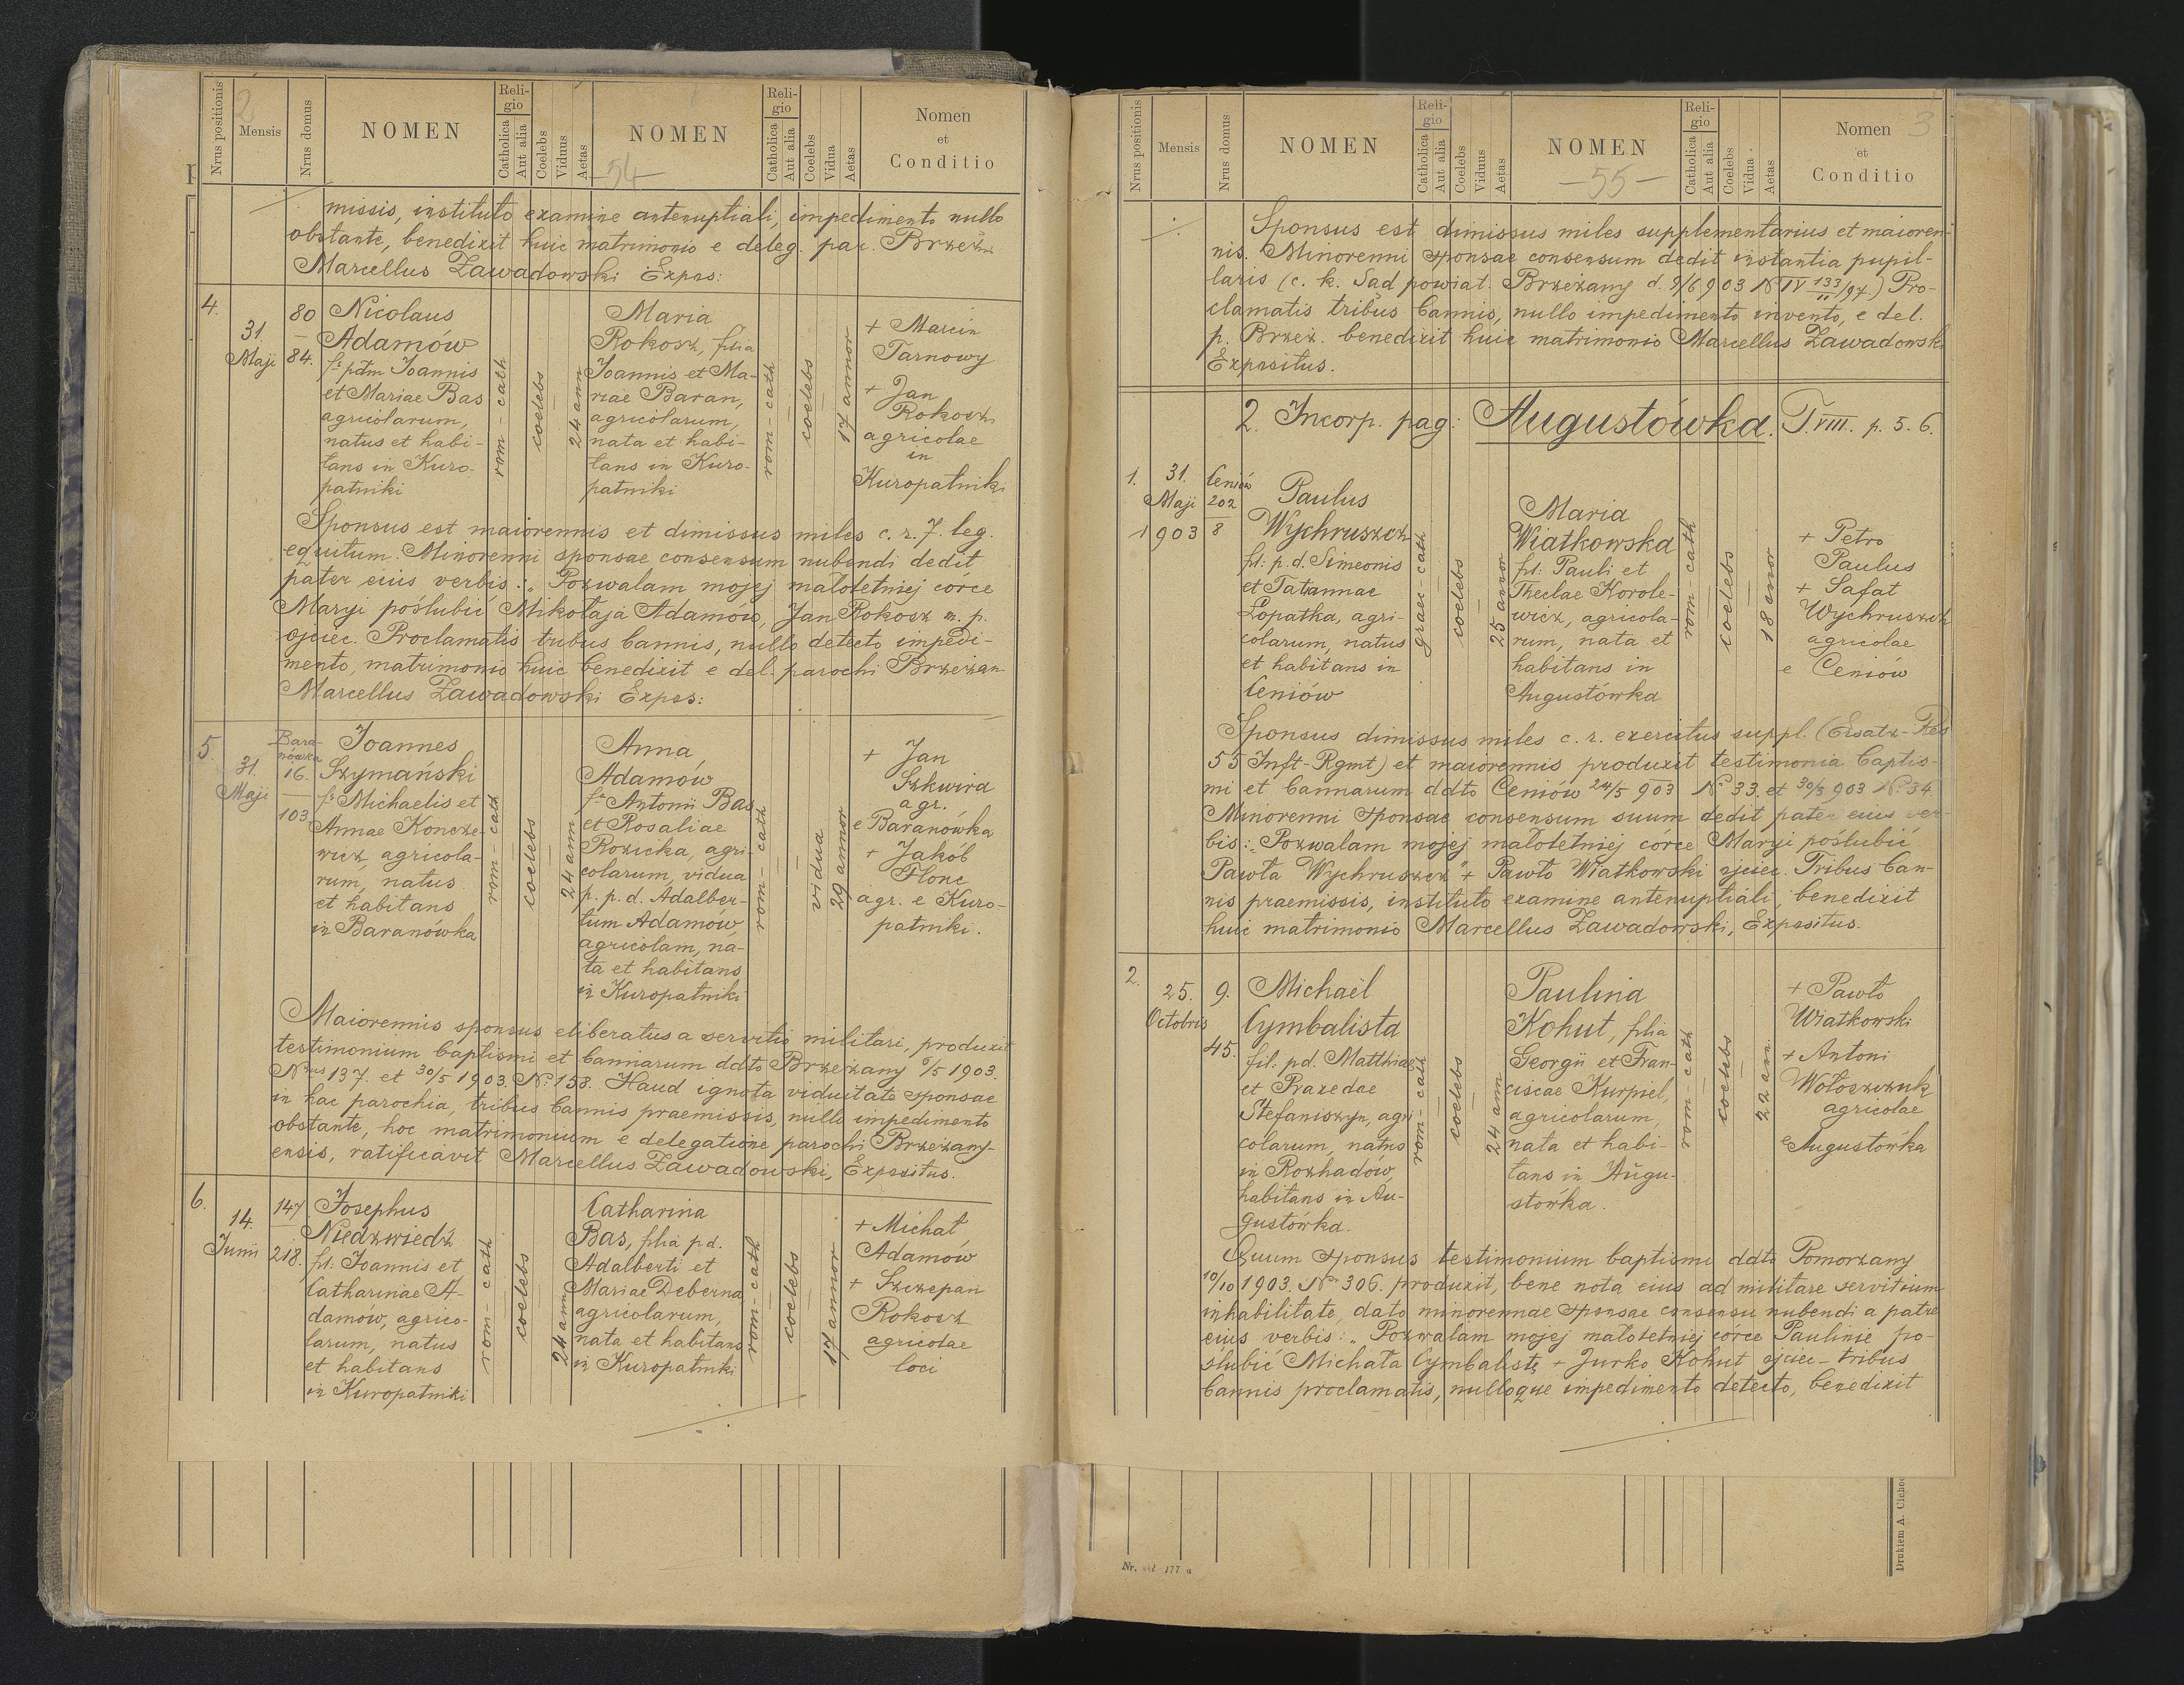 2
Nrus positionis
Mensis
Nrus domus
NOMEN
Religio
Catholica
Aut alia
Coelebs
Viduus
Aetas
NOMEN
Religio
Catholica
Aut alia
Coelebs
Vidua
Aetas
Nomen
et
Conditio
-54-
missis, instituto examine antenuptiali, impedimento nullo
obstante, benedixit huic matrimonio e deleg. par. Brzeżn
Marcellus Zawadowski Expos:
4.
31.
Maji
80
84.
Nicolaus
Adamów
fs pdm Joannis
et Mariae Bas
agricolarum,
natus et habi-
tans in Kuro-
patniki
rom-cath
coelebs
24 ann
Maria
Rokosz, filia
Joannis et Ma-
riae Baran,
agricolarum,
nata et habi-
tans in Kuro-
patniki
rom-cath
coelebs
17 annor
+ Marcin
Tarnowy
+ Jan
Rokosz
agricolae
in
Kuropatniki
Sponsus est maiorennis et dimissus miles c. r. 7. leg.
equitum. Minorenni sponsae consensum nubendi dedit
pater eius verbis: „Pozwalam mojej małoletniej córce
Maryi poślubić Mikołaja Adamów, Jan Rokosz m. p.
ojciec. Proclamatis tribus bannis, nullo detecto impedi-
mento, matrimonio huic benedixit e del. parochi Brzeżan
Marcellus Zawadowski Expos:
5.
31.
Maji
Bara-
nówka
16.
103
Joannes
Szymański
fs Michaelis et
Annae Koncze-
wicz, agricola-
rum, natus
et habitans
in Baranówka
rom-cath
coelebs
24 ann
Anna
Adamów
fa Antonii Bas
et Rosaliae
Rozicka, agri-
colarum, vidua
p. p. d. Adalber-
tum Adamów
agricolam, na-
ta et habitans
in Kuropatniki
rom-cath
vidua
29 annor
+ Jan
Szkwira
agr.
e Baranówka
+ Jakób
Honc
agr. e Kuro-
patniki.
Maiorennis sponsus eliberatus a servitio militari, produxit
testimonium baptismi et bannarum ddto Brzeżany 6/5 1903.
Nrus 137. et 30/5 1903. No 158. Haud ignota viduitate sponsae
in hac parochia, tribus bannis praemissis, nullo impedimento
obstante, hoc matrimonium e delegatione parochi Brzeżany-
ensis, ratificavit Marcellus Zawadowski, Expositus.
6.
14.
Junii
147
218.
Josephus
Niedzwiedź
fil: Joannis et
Catharinae A-
damów, agrico-
larum, natus
et habitans
in Kuropatniki
rom-cath
coelebs
24 ann
Catharina
Bas, filia pd.
Adalberti et
Mariae Deberna
agricolarum,
nata et habitans
in Kuropatniki
rom-cath
coelebs
17 annor
+ Michał
Adamów
+ Szczepan
Rokosz
agricolae
loci
3
Nrus positionis
Mensis
Nrus domus
NOMEN
Religio
Catholica
Aut alia
Coelebs
Viduus
Aetas
NOMEN
Religio
Catholica
Aut alia
Coelebs
Vidua
Aetas
Nomen
et
Conditio
-55-
Sponsus est dimissus miles supplementarius et maioren-
nis. Minorenni sponsae consensum dedit instantia pupil-
laris (c. k. Sad powiat. Brzeżany d. 9/6 903 No IV 133/II/97) Pro-
clamatis tribus bannis, nullo impedimento invento, e del.
p. Brzeż. benedixit huic matrimonio Marcellus Zawadowski
Expositus.
2. Incorp. pag: Augustówka. T. VIII. p. 5. 6.
1.
31.
Maji
1903
Ceniów
202
8
Paulus
Wychruszcz
fil: p. d. Simeonis
et Tatiannae
Łopatka, agri-
colarum, natus
et habitans in
Ceniów
graec-cath
coelebs
25 annor
Maria
Wiatkowska
fil: Pauli et
Theclae Korole-
wicz, agricola-
rum, nata et
habitans in
Augustówka
rom-cath
coelebs
18 annor
+ Petro
Paulus
+ Safat
Wychruszcz
agricolae
e Ceniów
Sponsus dimissus miles c. r. exercitus suppl. (Ersatz-Res
55 Inft-Rgmt) et maiorennis produxit testimonia baptis-
mi et bannarum ddto Ceniów 24/5 903 No 33. et 30/5 903 No 34.
Minorenni sponsae consensum suum dedit pater eius ver-
bis: „Pozwalam mojej małoletniej córce Maryi poślubić
Pawła Wychruszcz" + Pawło Wiatkowski ojciec. Tribus ban-
nis praemissis, instituto examine antenuptiali, benedixit
huic matrimonio Marcellus Zawadowski, Expositus.
2.
25.
Octobris
9.
45.
Michaël
Cymbalista
fil. pd. Matthiae
et Praxedae
Stefaniszyn, agri-
colarum, natus
in Rozhadów,
habitans in Au-
gustówka.
rom-cath
coelebs
24 ann
Paulina
Kohut, filia
Georgii et Fran-
ciscae Kurpiel,
agricolarum,
nata et habi-
tans in Augu-
stówka.
rom-cath
coelebs
22 ann.
+ Pawło
Wiatkowski
+ Antoni
Wołoszczuk
agricolae
e Augustówka
Quum sponsus testimonium baptismi ddto Pomorzany
10/10 1903. No 306. produxit, bene nota eius ad militare servitium
inhabilitate, dato minorennae sponsae consensu nubendi a patre
eius verbis: „Pozwalam mojej małoletniej córce Paulinie po-
ślubić Michała Cymbalistę + Jurko Kohut ojciec - tribus
bannis proclamatis, nulloque impedimento detecto, benedixit
Nr. 177 a
Drukiem A. Cicho